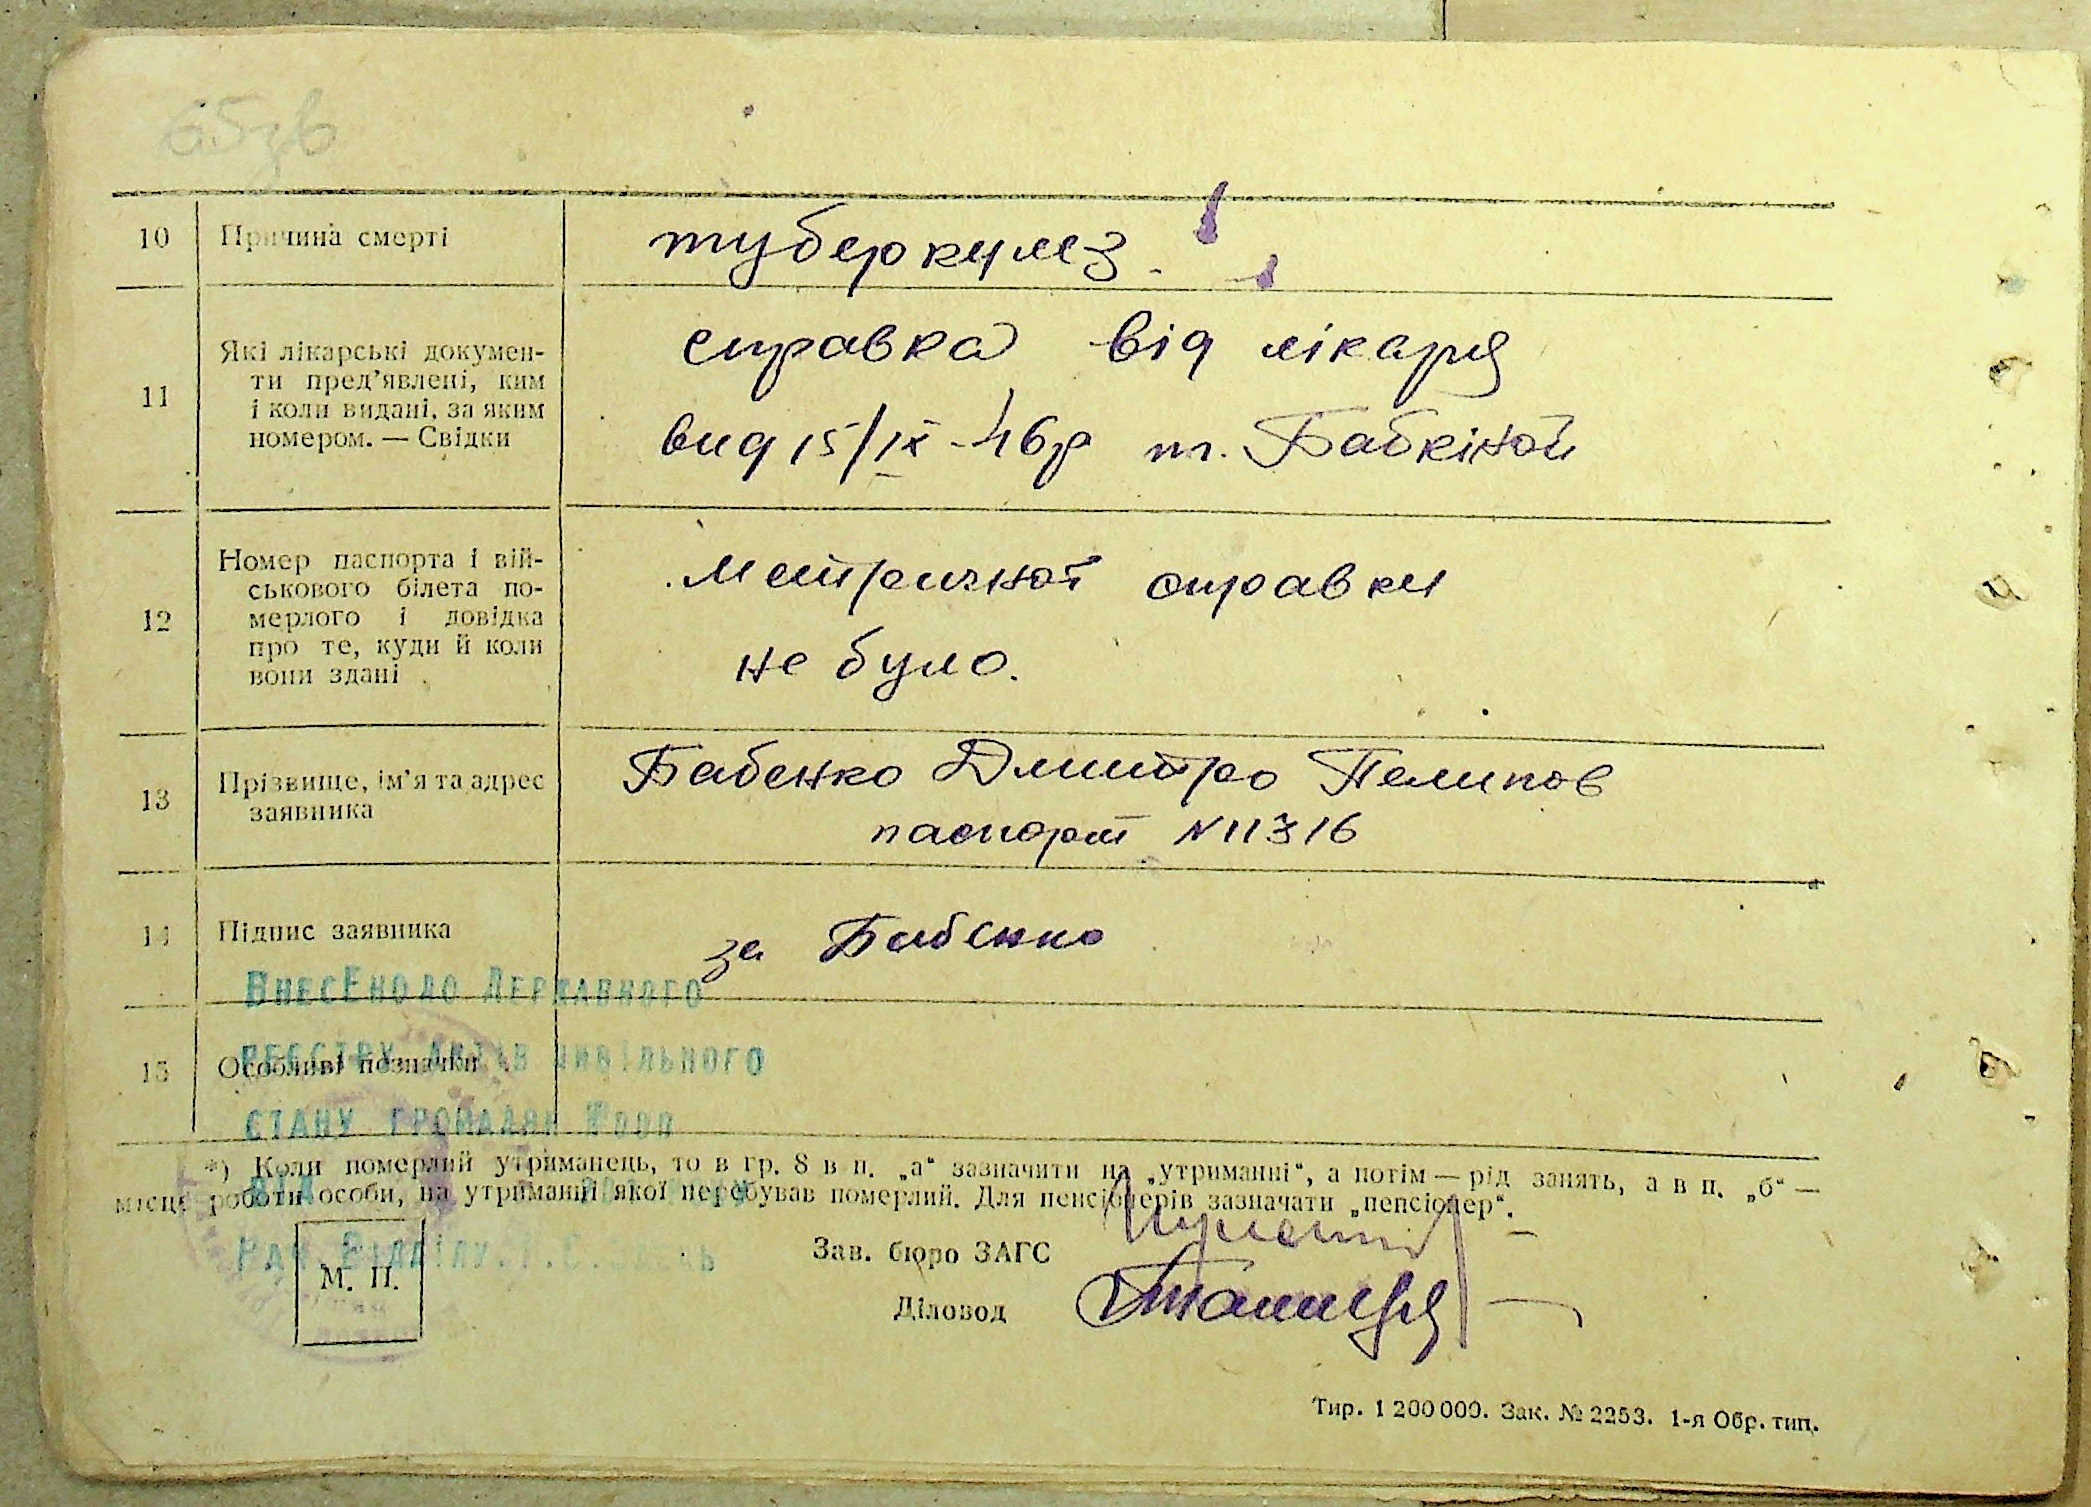 65зв
10 Причина смерті туберкулез.
11 Які лікарські докумен-
ти пред'явлені, ким
і коли видані, за яким
номером. — Свідки
справка від лікаря
вид 15/IX-46р т. Бабкіной
12 Номер паспорта і вій-
ськового білета по-
мерлого і довідка
про те, куди й коли
вони здані
Метричної справки
не було.
13 Прізвище, ім'я та адрес
заявника
Бабенко Дмитро Пелипов
паспорт N 11316
14 Підпис заявника за Бабенко
ВнесЕно до Державного
реєстру актів цивільного
15 Особливі позначки
стану громадян
*) Коли померлий утриманець, то в гр. 8 в п. „а“ зазначити на „утриманні“, а потім — рід занять, а в п. „б“ —
місце роботи особи, на утриманні якої перебував померлий. Для пенсіонерів зазначати „пенсіонер“.
М. П.
Зав. бюро ЗАГС
Діловод
Тир. 1 200 000. Зак. № 2253. 1-я Обр. тип.